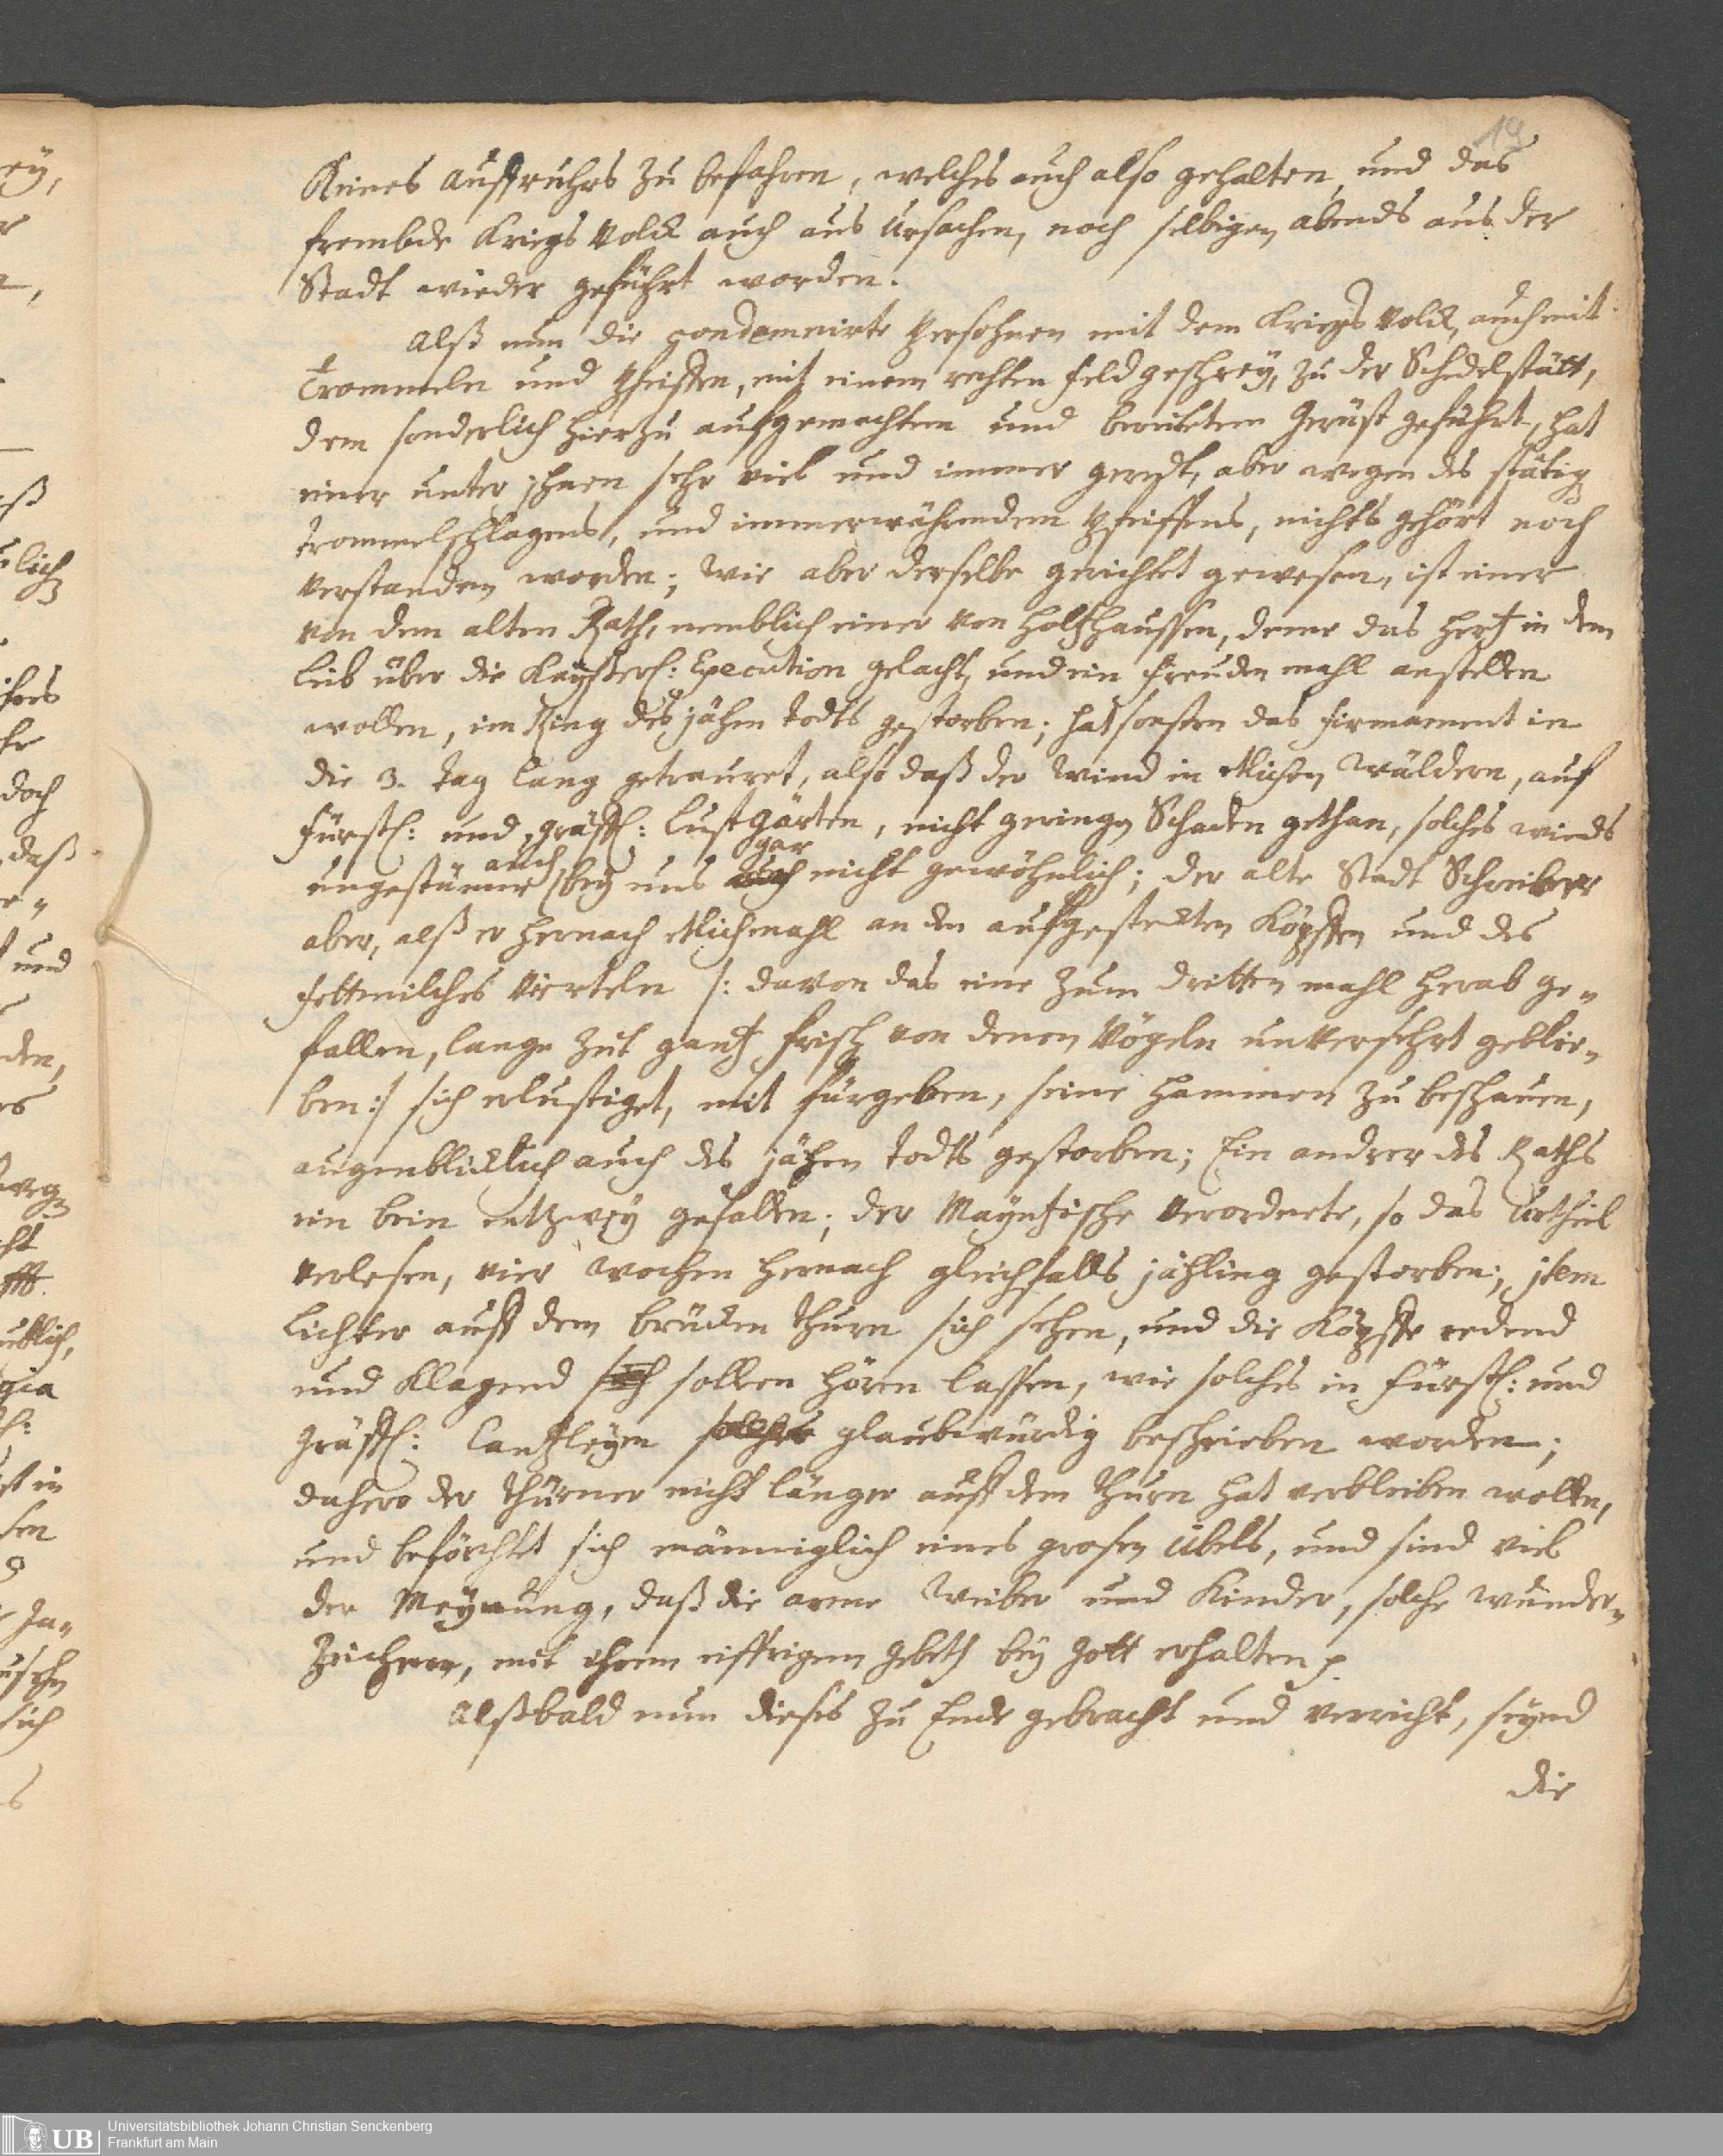 19
Keines auffruhrs zu befahren, welches auch also gehalten, und das
frembde Kriegs Volck auch aus ursachen, noch selbigen abends aus der
Stadt wieder geführt worden.
Alß nun die condemnirte Persohnen mit dem Kriegs Volck, auch mit
Trommeln und Pfeiffen, mit einem rechten feldgeschrey, zu der Schedelstätt,
dem sonderlich hierzu aufgemachten und bereitetem Gerüst geführt, hat
einer unter jhnen sehr viel und immer geredt, aber wegen des stätig
trommelschlagens, und immerwährendem Pfeiffens, nichts gehört noch
verstanden worden; Wie aber derselbe gerichtet gewesen, ist einer
von dem alten Rath, nemblich einer von Holtzhaussen, deme das Hertz in dem
Leib über die Kayßerl: Execution gelacht, und ein freuden mahl anstellen
wollen, im Ring des jähen todts gestorben; hat sonsten das firmament in
die 3. tag lang getrauret, also daß der Wind in etlichen Wäldern, auf
fürstl: und gräffl: Lustgärten, nicht geringen Schaden gethan, solches winds
ungestümme auch bey uns auch gar nicht gewöhnlich; der alte Stadt Schreiber
aber, alß er hernach etlichmahl an den aufgesteckten Köpffen und des
fettmilches Vierteln /: davon das eine zum dritten mahl herab ge-
fallen, lange zeit gantz frisch von denen Vögeln unversehrt geblie-
ben :/ sich erlustiget, mit fürgeben, seine Hammen zu beschauen,
augenblicklich auch des jähen todts gestorben; Ein andrer des Raths
ein bein entzwey gefallen; der Mayntzische Verordnete, so das Urtheil
verlesen, vier Wochen hernach gleichfalls jähling gestorben; jtem
Lichter auff dem brücken thurn sich sehen, und die Köpffe redend
und klagend sich sollen hören lassen, wie solches in fürstl: und
gräffl: Cantzleyen solches glaubwürdig beschrieben worden;
dahero der thürner nicht länger auff dem thurn hat verbleiben wollen,
und beförchtet sich männiglich eines grosen übels, und sind viel
der Meynung, daß die arme Weiber und Kinder, solche wunder-
Zeichen, mit ihrem eiffrigem gebeth bey Gott erhalten p.
Alßbald nun dieses zu Ende gebracht und verricht, seynd
die
UB
Universitätsbibliothek Johann Christian Senckenberg
Frankfurt am Main